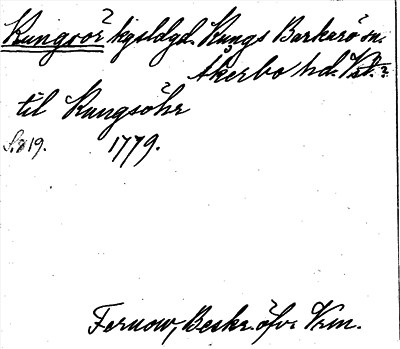 Kungsör kgsldgd. Kungs Barkarö sn.
Åkerbo hd. Vstm.
til Kungsöhr
S. 819. 1779.
Fernow, Beskr. öfv. Vrm.